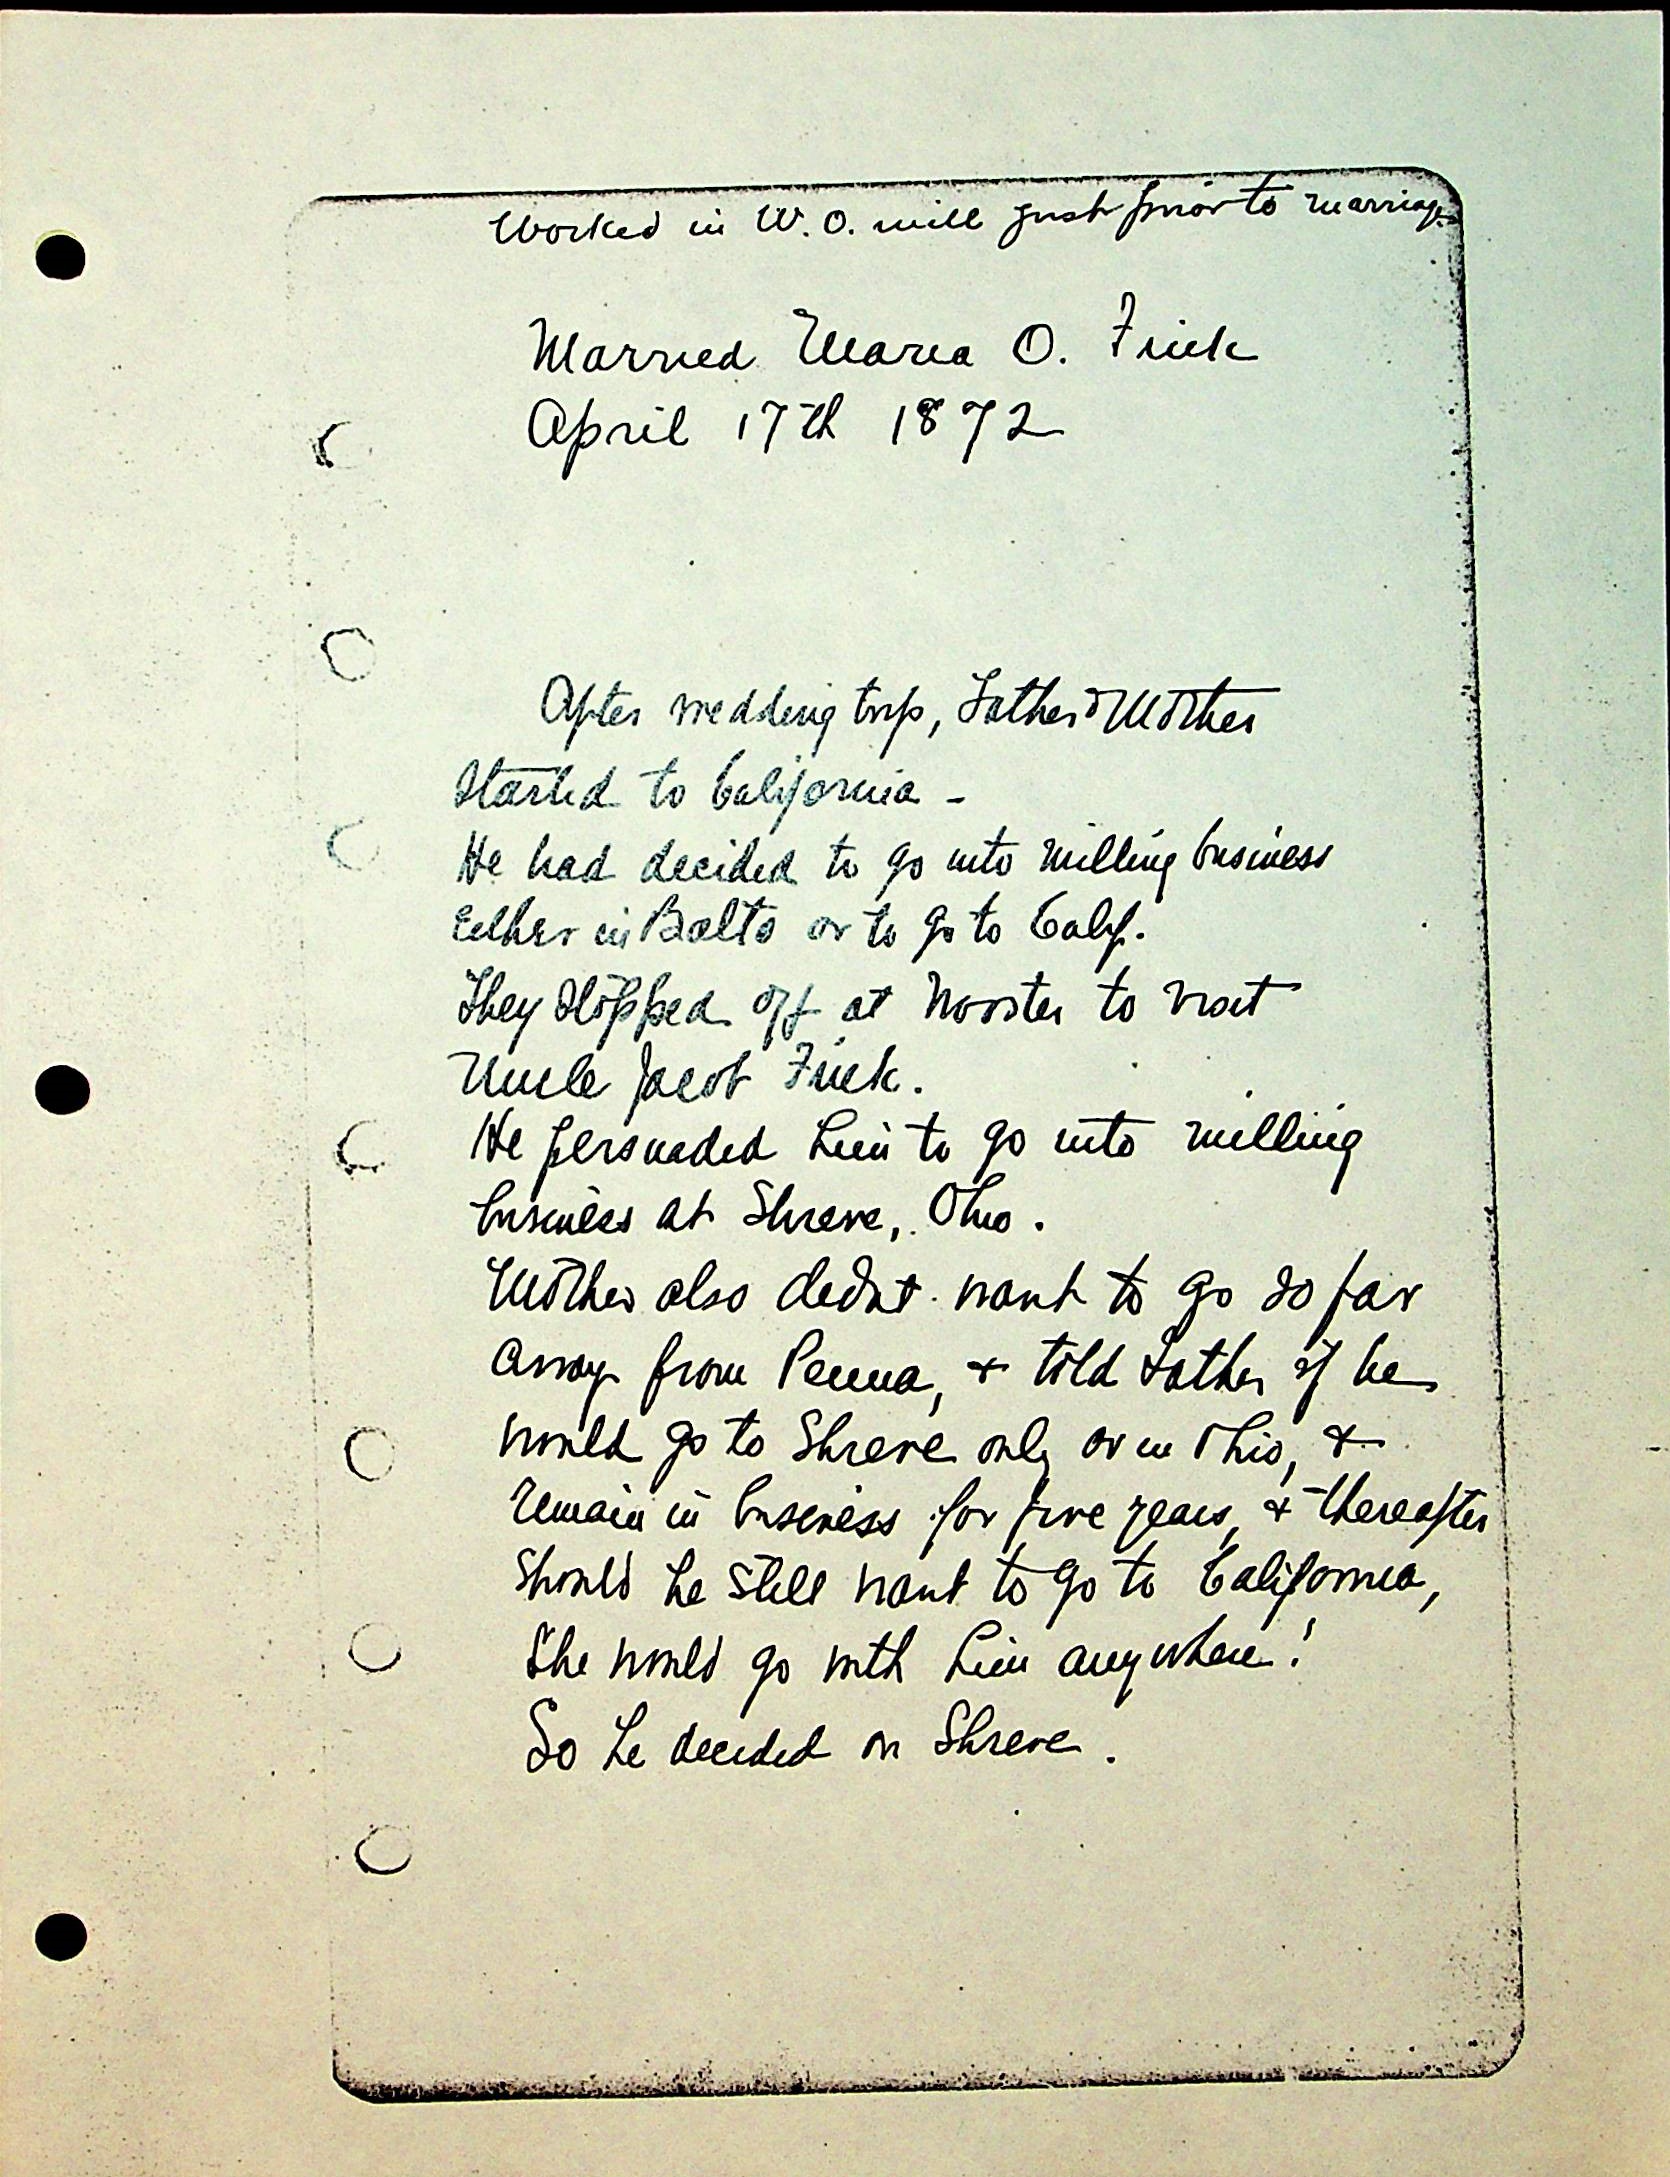 Worked in W. O. mill just prior to marriage
Married Maria O. Frick
April 17th 1872
After wedding trip, Father & Mother
started to California -
He had decided to go into milling business
either in Balto or to go to Calif.
They stopped off at Wooster to visit
Uncle Jacob Frick.
He persuaded him to go into milling
business at Shreve, Ohio.
Mother also didnt want to go so far
away from Penna, + told Father if he
would go to Shreve only or in Ohio, +
remain in business for five years, + thereafter
should he still want to go to California,
she would go with him anywhere!
So he decided on Shreve.